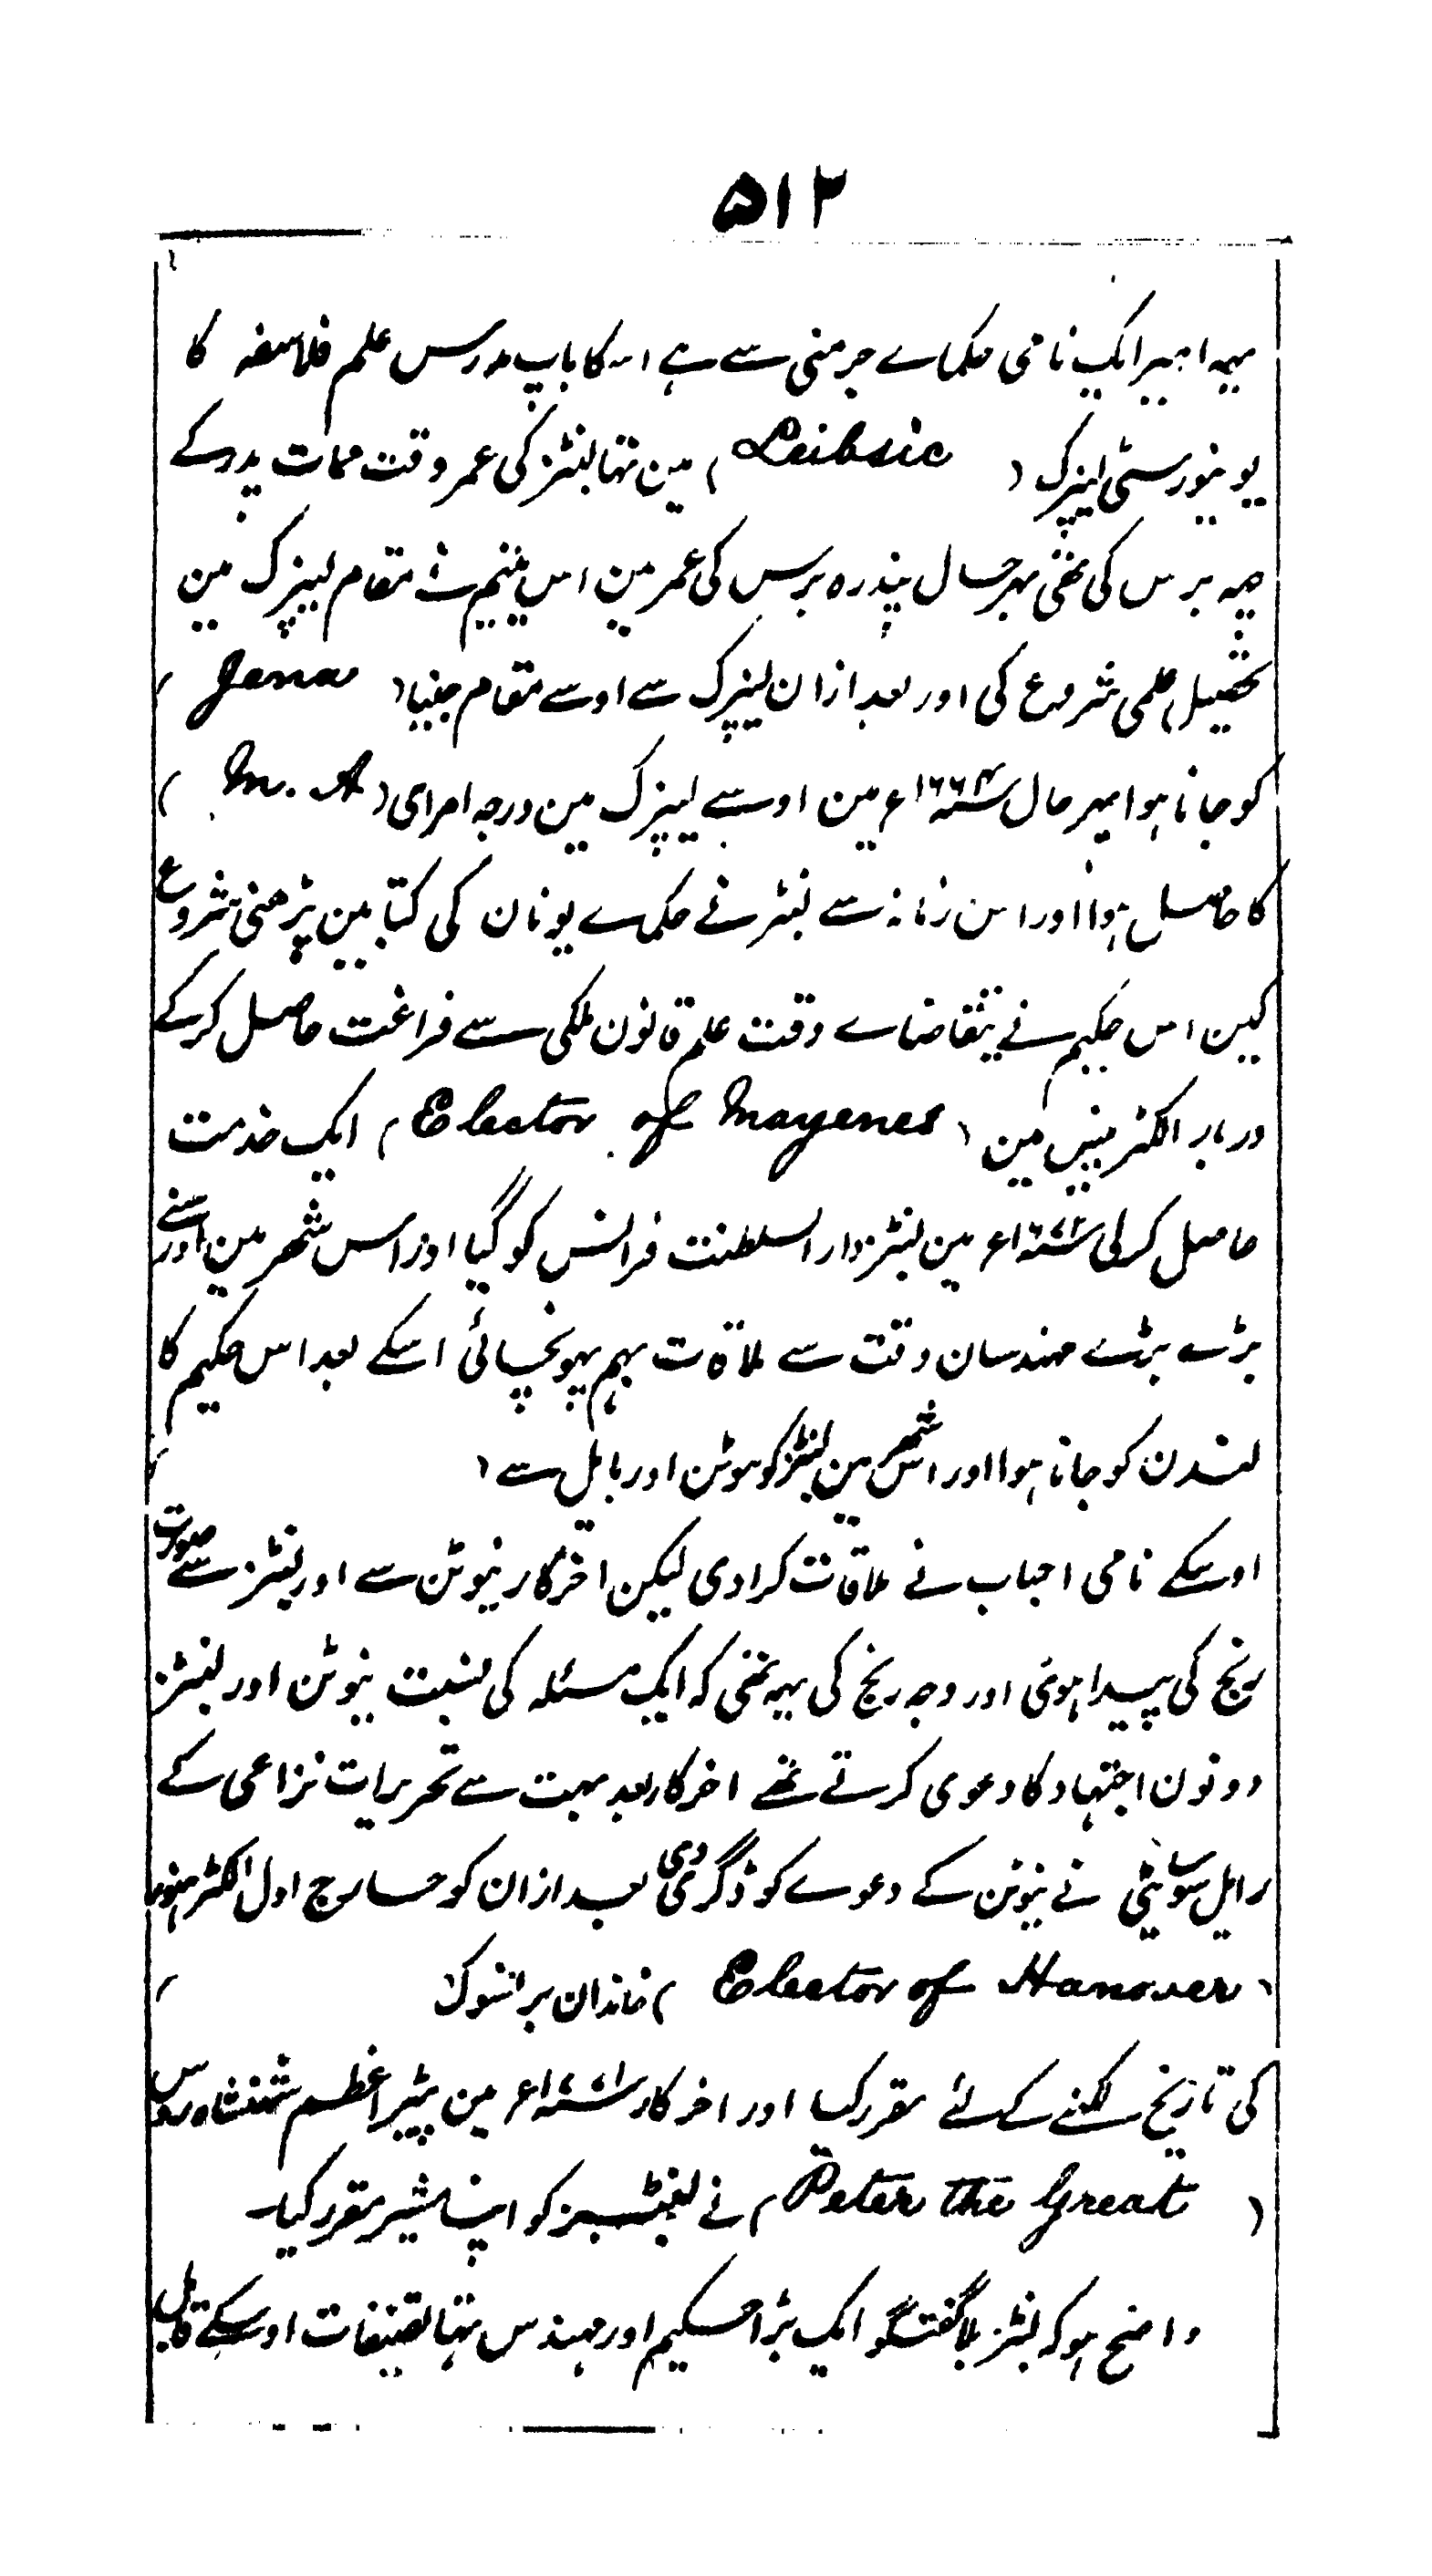 ۵۱۲
یہہ امیر ایک نامی حکماے جرمنی سے ہے اسکا باپ مدرس علم فلاسفہ کا
یونیورسٹی لیپزک ( Leibsic ) مین تھا لبنٹز کی عمر وقت ممات پدر کے
چھہ برس کی تھی بہرحال پندرہ برس کی عمر مین اس یتیم نے مقام لیپزک مین
تحصیل علمی شروع کی اور بعد ازان لیپزک سے اوسے مقام جنیا ( Jena )
کو جانا ہوا بہر حال ۱۶۶۴ء مین اوسے لیپزک مین درجہ ام ای ( M. A )
کا حاصل ہوا اور اس زمانہ سے لبنٹز نے حکماے یونان کی کتابین پڑھنی شروع
کین اس حکیم نے بتقاضاے وقت علم قانون ملکی سے فراغت حاصل کرکے
دربار الکٹر مینس مین ( Elector of Mayenes ) ایک خدمت
حاصل کرلی ۱۶۷۲ء مین لبنٹز دار السلطنت فرانس کو گیا اور اس شھر مین اوسنے
بڑے بڑے مہندسان وقت سے ملاقات بہم پہونچائی اسکے بعد اس حکیم کا
لندن کو جانا ہوا اور اس شھر مین لبنٹز کو نیوٹن اور بایل سے (
اوسکے نامی احباب نے ملاقات کرادی لیکن اخرکار نیوٹن سے اور لبنٹز سے صورت
رنج کی پیدا ہوئی اور وجہ رنج کی یہہ تھی کہ ایک مسئلہ کی نسبت نیوٹن اور لبنٹز
دونون اجتہاد کا دعوی کرتے تھے اخرکار بعد بہت سے تحریرات نزاعی کے
رایل سوسایٹی نے نیوٹن کے دعوے کو ڈگری دی بعد ازان کو جارج اول الکٹر ہنور
( Elector of Hanover ) خاندان برانسوک )
کی تاریخ لکہنے کے لئے مقرر کیا اور اخرکار ۱۷۱۱ء مین پیٹر اعظم شہنشاہ روس
( Peter the Great ) نے لبنٹز کو اپنا مشیر مقرر کیا۔
واضح ہو کہ لبنٹز بلا گفتگو ایک بڑا حکیم اور مہندس تہا تصنیفات اوسکے قابل